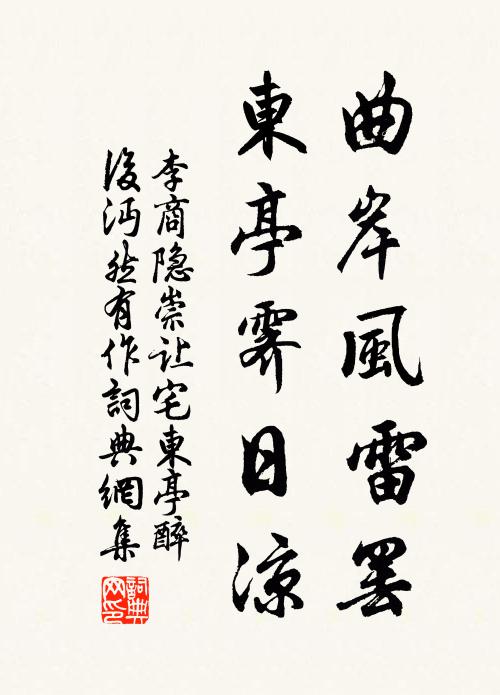 曲岸風雷罷
東亭霽日涼
李商隐崇让宅東亭醉
後沔然有作詞典網集
詞典
网印